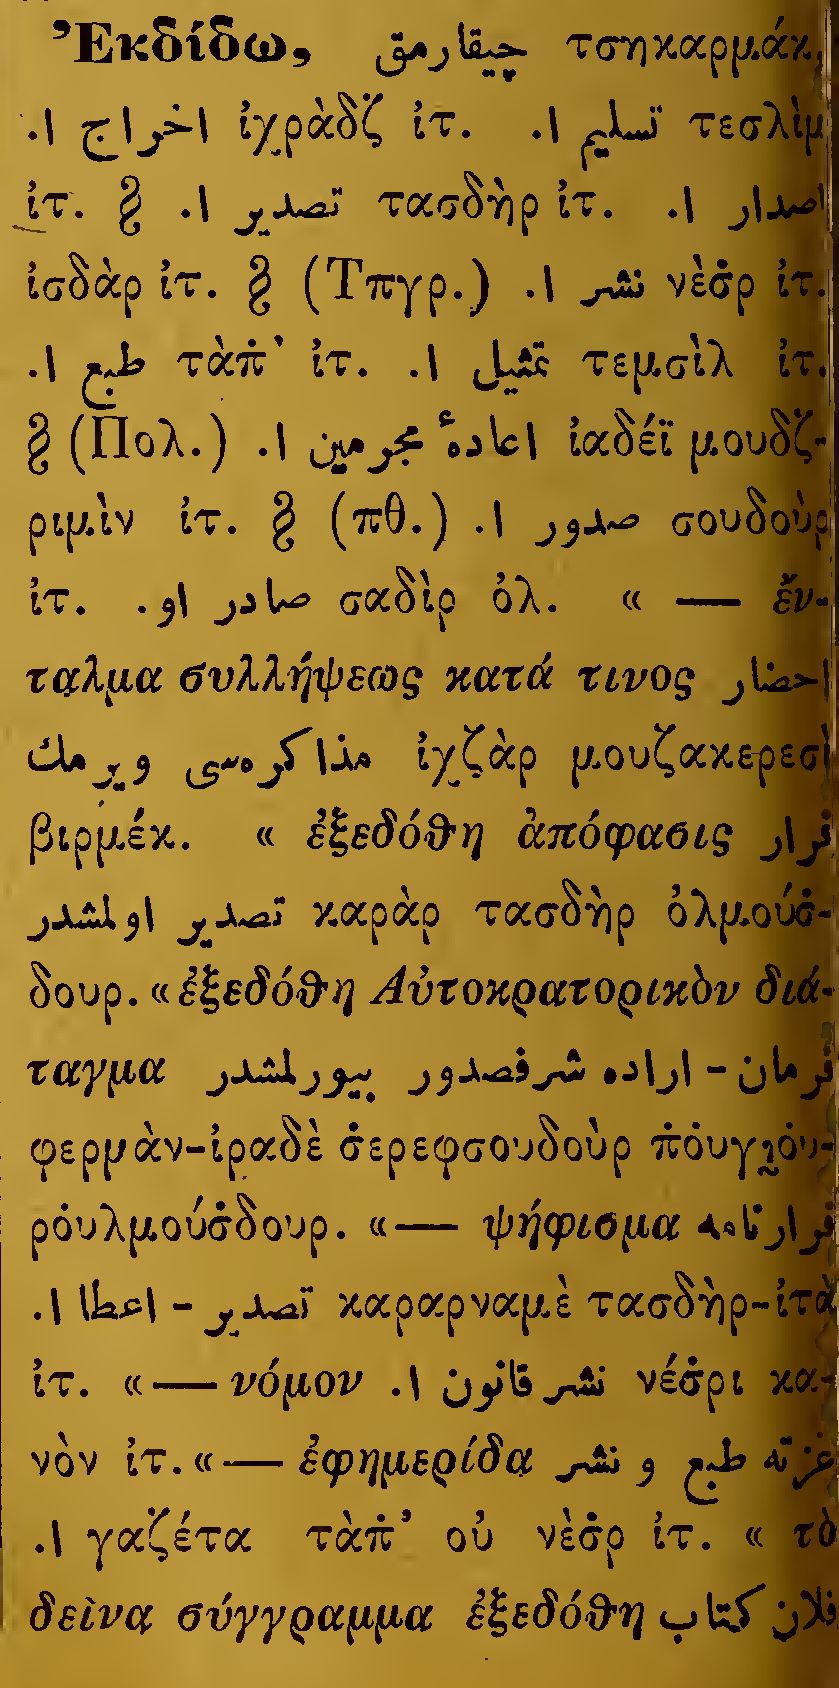 Ἐκδίδω, چيقارمق τσηκαρμάκ,
اخراج ا. ἰχρὰδζ ἰτ. تسليم ا. τεσλὶμ
ἰτ. § تصدير ا. τασδὴρ ἰτ. اصدار ا.
ἰσδὰρ ἰτ. § (Τπγρ.) نشر ا. νὲσ̇ρ ἰτ.
طبع ا. τὰπ̇’ ἰτ. تمثيل ا. τεμσὶλ ἰτ.
§ (Πολ.) اعادهٔ مجرمين ا. ἰαδέϊ μουδζ-
ριμὶν ἰτ. § (πθ.) صدور ا. σουδοὺρ
ἰτ. صادر او. σαδὶρ ὀλ. « — ἔν-
ταλμα συλλήψεως κατά τινος احضار
مذاكره‌سى ويرمك ἰχζὰρ μουζακερεσὶ
βιρμέκ. « ἐξεδόθη ἀπόφασις قرار
تصدير اولمشدر καρὰρ τασδὴρ ὀλμούσ̇-
δουρ. « ἐξεδόθη Αὐτοκρατορικὸν διά-
ταγμα فرمان - اراده شرفصدور بيورلمشدر
φερμὰν-ἰραδὲ σ̇ερεφσουδοὺρ π̇ὀυγι̮ὀυ-
ρὀυλμούσ̇δουρ. « — ψήφισμα قرارنامه
تصدير - اعطا ا. καραρναμὲ τασδὴρ-ἰτὰ
ἰτ. « — νόμον نشر قانون ا. νέσ̇ρι κα-
νὸν ἰτ. « — ἐφημερίδα غزته طبع و نشر
ا. γαζέτα τὰπ̇’ οὐ νὲσ̇ρ ἰτ. « τὸ
δεῖνα σύγγραμμα ἐξεδόθη فلان كتاب